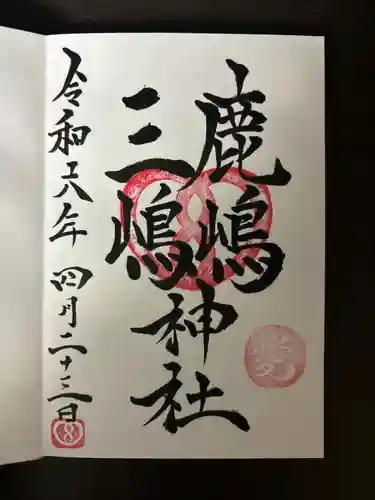 鹿嶋
三嶋
神社
令和六年 四月二十三日